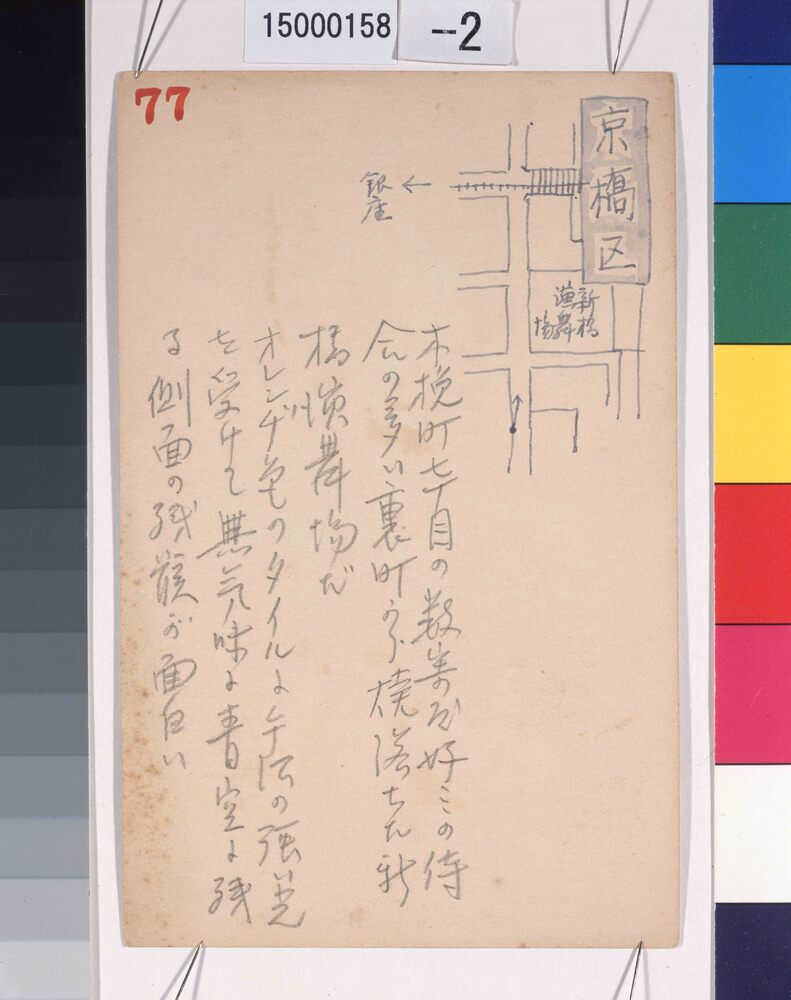 15000158
-2
77
京橋区
銀座
←
新橋
演舞場
木挽町七丁目の数寄屋好ミの待
合の多い裏町から焼落ちた新
橋演舞場だ
オレンヂ色のタイルに午后の強い光
を受けて無気味に青空に残
る側面の残骸が面白い